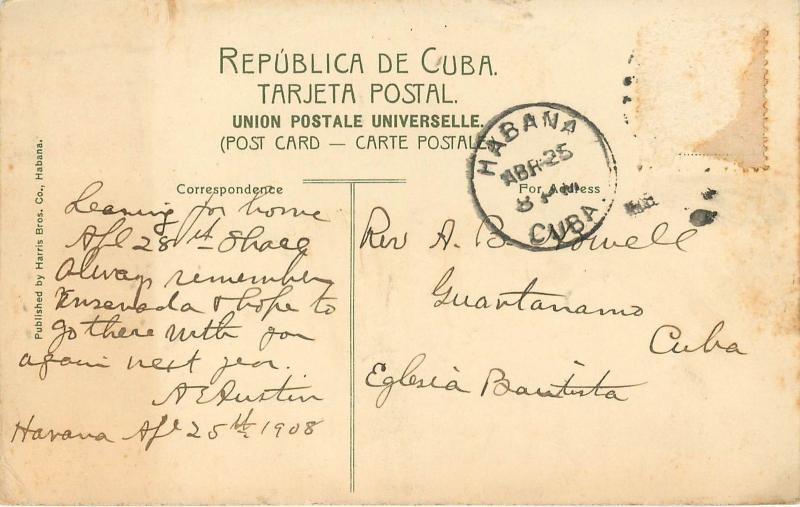 REPÚBLICA DE CUBA.
TARJETA POSTAL.
UNION POSTALE UNIVERSELLE.
(POST CARD — CARTE POSTALE
HABANA
ABR 25
8
CUBA.
Published by Harris Bros. Co., Habana.
Correspondence
Leaving for home
Apl 28th Shall
always remember
Ensenada & hope to
go there with you
again next year.
A E Austin
Havana Apl 25th 1908
For Address
Rev A. B.
Guantanamo
Cuba
Eglesia Bautista